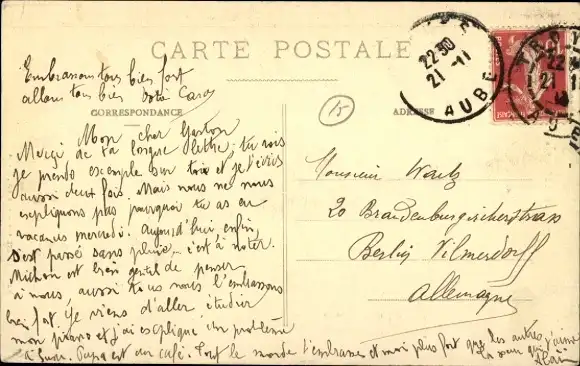 CARTE POSTALE
Embrassons tous bien fort
allons tous bien
CORRESPONDANCE
ADRESSE
15
22 30
21 - 11
AUBE
Mon cher Gaston
Merci de ta longue lettre, tu vois
je prends exemple sur toi et je t'écris
aussi deux fois. Mais nous ne nous
expliquons pas pourquoi tu as eu
vacances mercredi. Aujourd'hui enfin
s'est passé sans pluie, c'est à noter.
Michon est bien gentil de penser
à nous, aussi nous l'embrassons
bien fort. Je viens d'aller étudier
mon piano et j'ai expliqué un problème
à Papa est au café. Tout le monde t'embrasse et moi plus fort que les autres,
Monsieur
20 Brandenburgischerstrass
Berlin Vilmersdorff
Allemagne